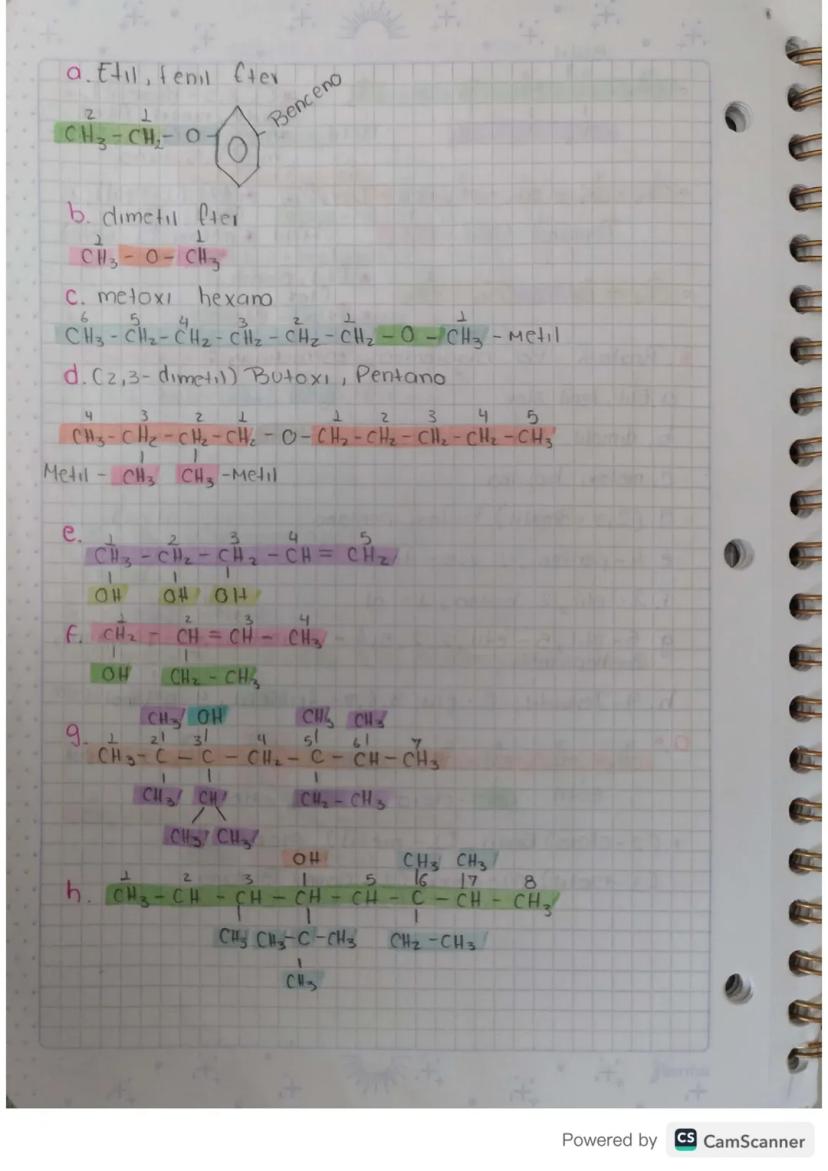 a. Etil, fenil Éter
2 1
CH₃ - CH₂ - O - Benceno
b. dimetil Éter
1 1
CH₃ - O - CH₃
c. metoxi hexano
6 5 4 3 2 1 1
CH₃ - CH₂ - CH₂ - CH₂ - CH₂ - CH₂ - O - CH₃ - Metil
d. (2,3- dimetil) Butoxi, Pentano
4 3 2 1 1 2 3 4 5
CH₃ - CH₂ - CH₂ - CH₂ - O - CH₂ - CH₂ - CH₂ - CH₂ - CH₃
Metil - CH₃ CH₃ - Metil
e. 1 2 3 4 5
CH₃ - CH₂ - CH₂ - CH = CH₂
OH OH OH
1 2 3 4
f. CH₂ - CH = CH - CH₃
OH CH₂ - CH₃
CH₃ OH CH₃ CH₃
g. 1 2 3 4 5 6 7
CH₃ - C - C - CH₂ - C - CH - CH₃
CH₃ CH CH₂ - CH₃
CH₃ CH₃
OH CH₃ CH₃
1 2 3 5 6 7 8
h. CH₃ - CH - CH - CH - CH - C - CH - CH₃
CH₃ CH₃ - C - CH₃ CH₂ - CH₃
CH₃
Powered by CS CamScanner